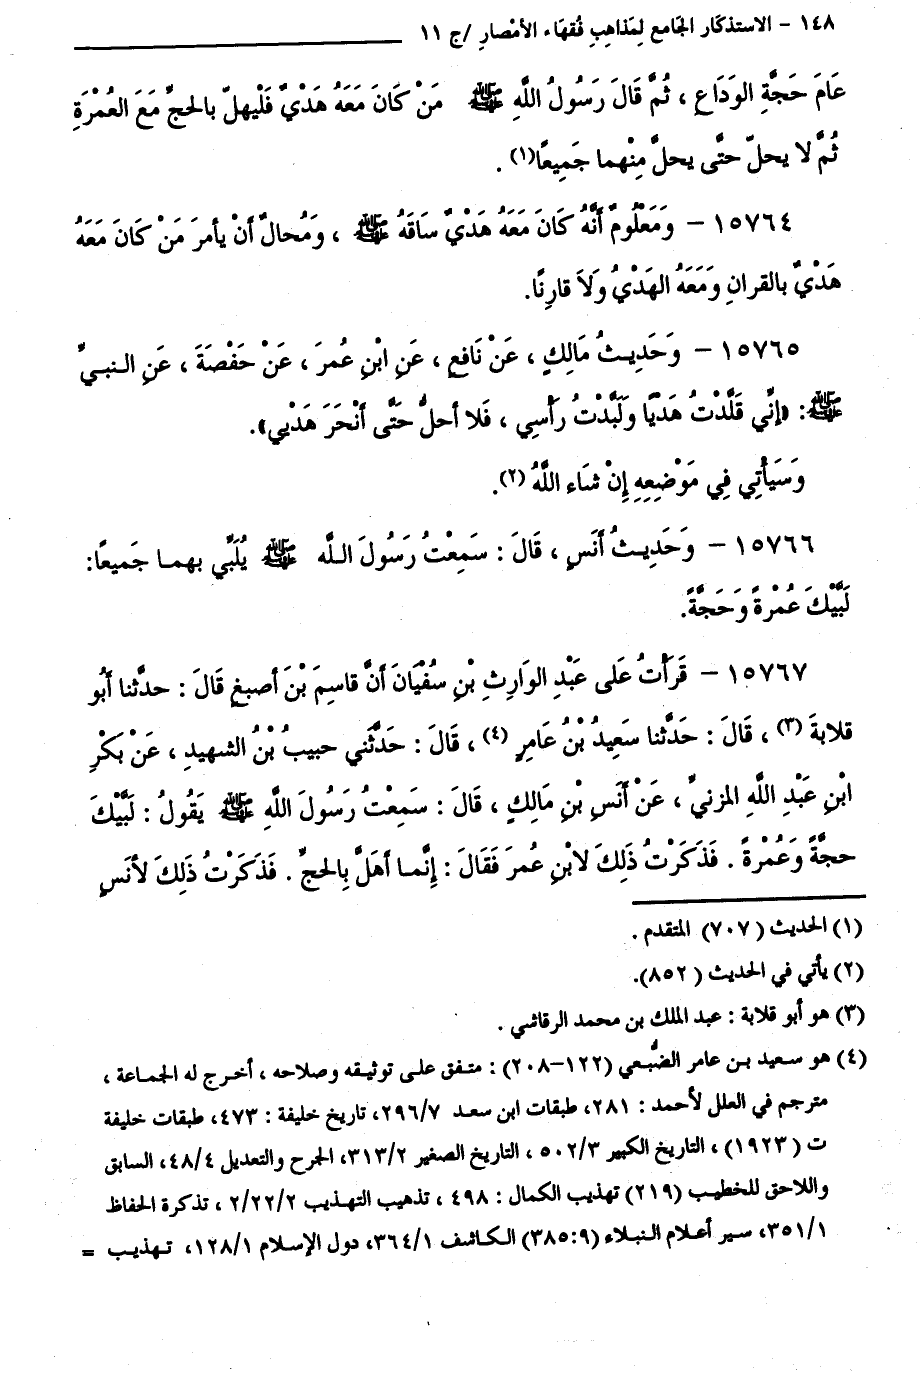 ١٤٨ – الاستذكار الجَامع لِمَذاهِبِ فُقهَاء الأمْصارِ /ج ١١
عَامَ حَجَّةِ الوَدَاعِ ، ثُمَّ قَالَ رَسُولُ اللَّهِ ﷺ مَنْ كَانَ مَعَهُ هَدْيٌ فَلْيهلّ بالحجِّ مَعَ العُمْرَةِ
ثُمَّ لا يحلّ حتَّى يحلَّ مِنْهما جَمِيعًا(١) .
١٥٧٦٤ – وَمَعَلُومٌ أَنَّهُ كَانَ مَعَهُ هَدْيٌ سَاقَهُ ﷺ ، ومَُحالٌ أَنْ يأمرَ مَنْ كَانَ مَعَهُ
هَدْيٌ بالقرانِ ومَعَهُ الهَدْيُ وَلاَ قارِنًا.
١٥٧٦٥ – وَحَدِيثُ مَالِكٍ ، عَنْ نَافِعٍ ، عَنِ ابْنِ عُمرَ ، عَنْ حَفْصَةَ ، عَنِ النبيِّ
ﷺ: «إنِّي قَلَّدْتُ هَدْيًا ولَبَّدْتُ رَأْسِي ، فَلا أحلُّ حَتَّى أَنْحَرَ هَدْيِي».
وَسَيَأْتِي فِي مَوْضِعِهِ إِنْ شَاء اللَّهُ (٢).
١٥٧٦٦ – وَحَدِيثُ أَنَسٍ ، قَالَ : سَمِعْتُ رَسُولَ اللَّه ﷺ يُلَبِّي بهما جَميعًا:
لَبَّيْكَ عُمْرةً وَحَجَّةً.
١٥٧٦٧ – قَرَأتُ عَلى عَبْدِ الوَارِثِ بْنِ سُفْيَانَ أَنَّ قاسِمَ بْنَ أصبغٍ قَالَ : حدثَّنا أَبُو
قلابةَ (٣) ، قَالَ : حَدَّثنا سَعِيدُ بْنُ عَامِرٍ (٤) ، قَالَ : حَدَّثَنِي حبيبُ بْنُ الشهيدِ ، عَنْ بَكْرِ
ابْنِ عَبْدِ اللَّهِ المزنيِّ ، عَنْ أَنَسِ بْنِ مَالِكٍ ، قَالَ : سَمِعْتُ رَسُولَ اللَّهِ ﷺ يَقُولُ : لَبَّيْكَ
حجَّةً وَعُمْرةً . فَذَكَرْتُ ذَلِكَ لابْنِ عُمرَ فَقَالَ : إِنَّما أَهَلَّ بِالحجِّ . فَذَكَرْتُ ذَلِكَ لأنَسٍ
(١) الحديث (٧٠٧) المتقدم .
(٢) يأتي في الحديث (٨٥٢).
(٣) هو أبو قلابة : عبد الملك بن محمد الرقاشي .
(٤) هو سعيد بن عامر الضُّبعي (١٢٢–٢٠٨) : متفق على توثيقه وصلاحه ، أخرج له الجماعة ،
مترجم في العلل لأحمد : ٢٨١، طبقات ابن سعد ٢٩٦/٧، تاريخ خليفة : ٤٧٣، طبقات خليفة
ت (١٩٢٣) ، التاريخ الكبير ٥٠٢/٣ ، التاريخ الصغير ٣١٣/٢، الجرح والتعديل ٤٨/٤، السابق
واللاحق للخطيب (٢١٩) تهذيب الكمال : ٤٩٨ ، تذهيب التهذيب ٢/٢٢/٢ ، تذكرة الحفاظ
٣٥١/١، سير أعلام النبلاء (٣٨٥:٩) الكاشف ٣٦٤/١، دول الإسلام ١٢٨/١، تهذيب =